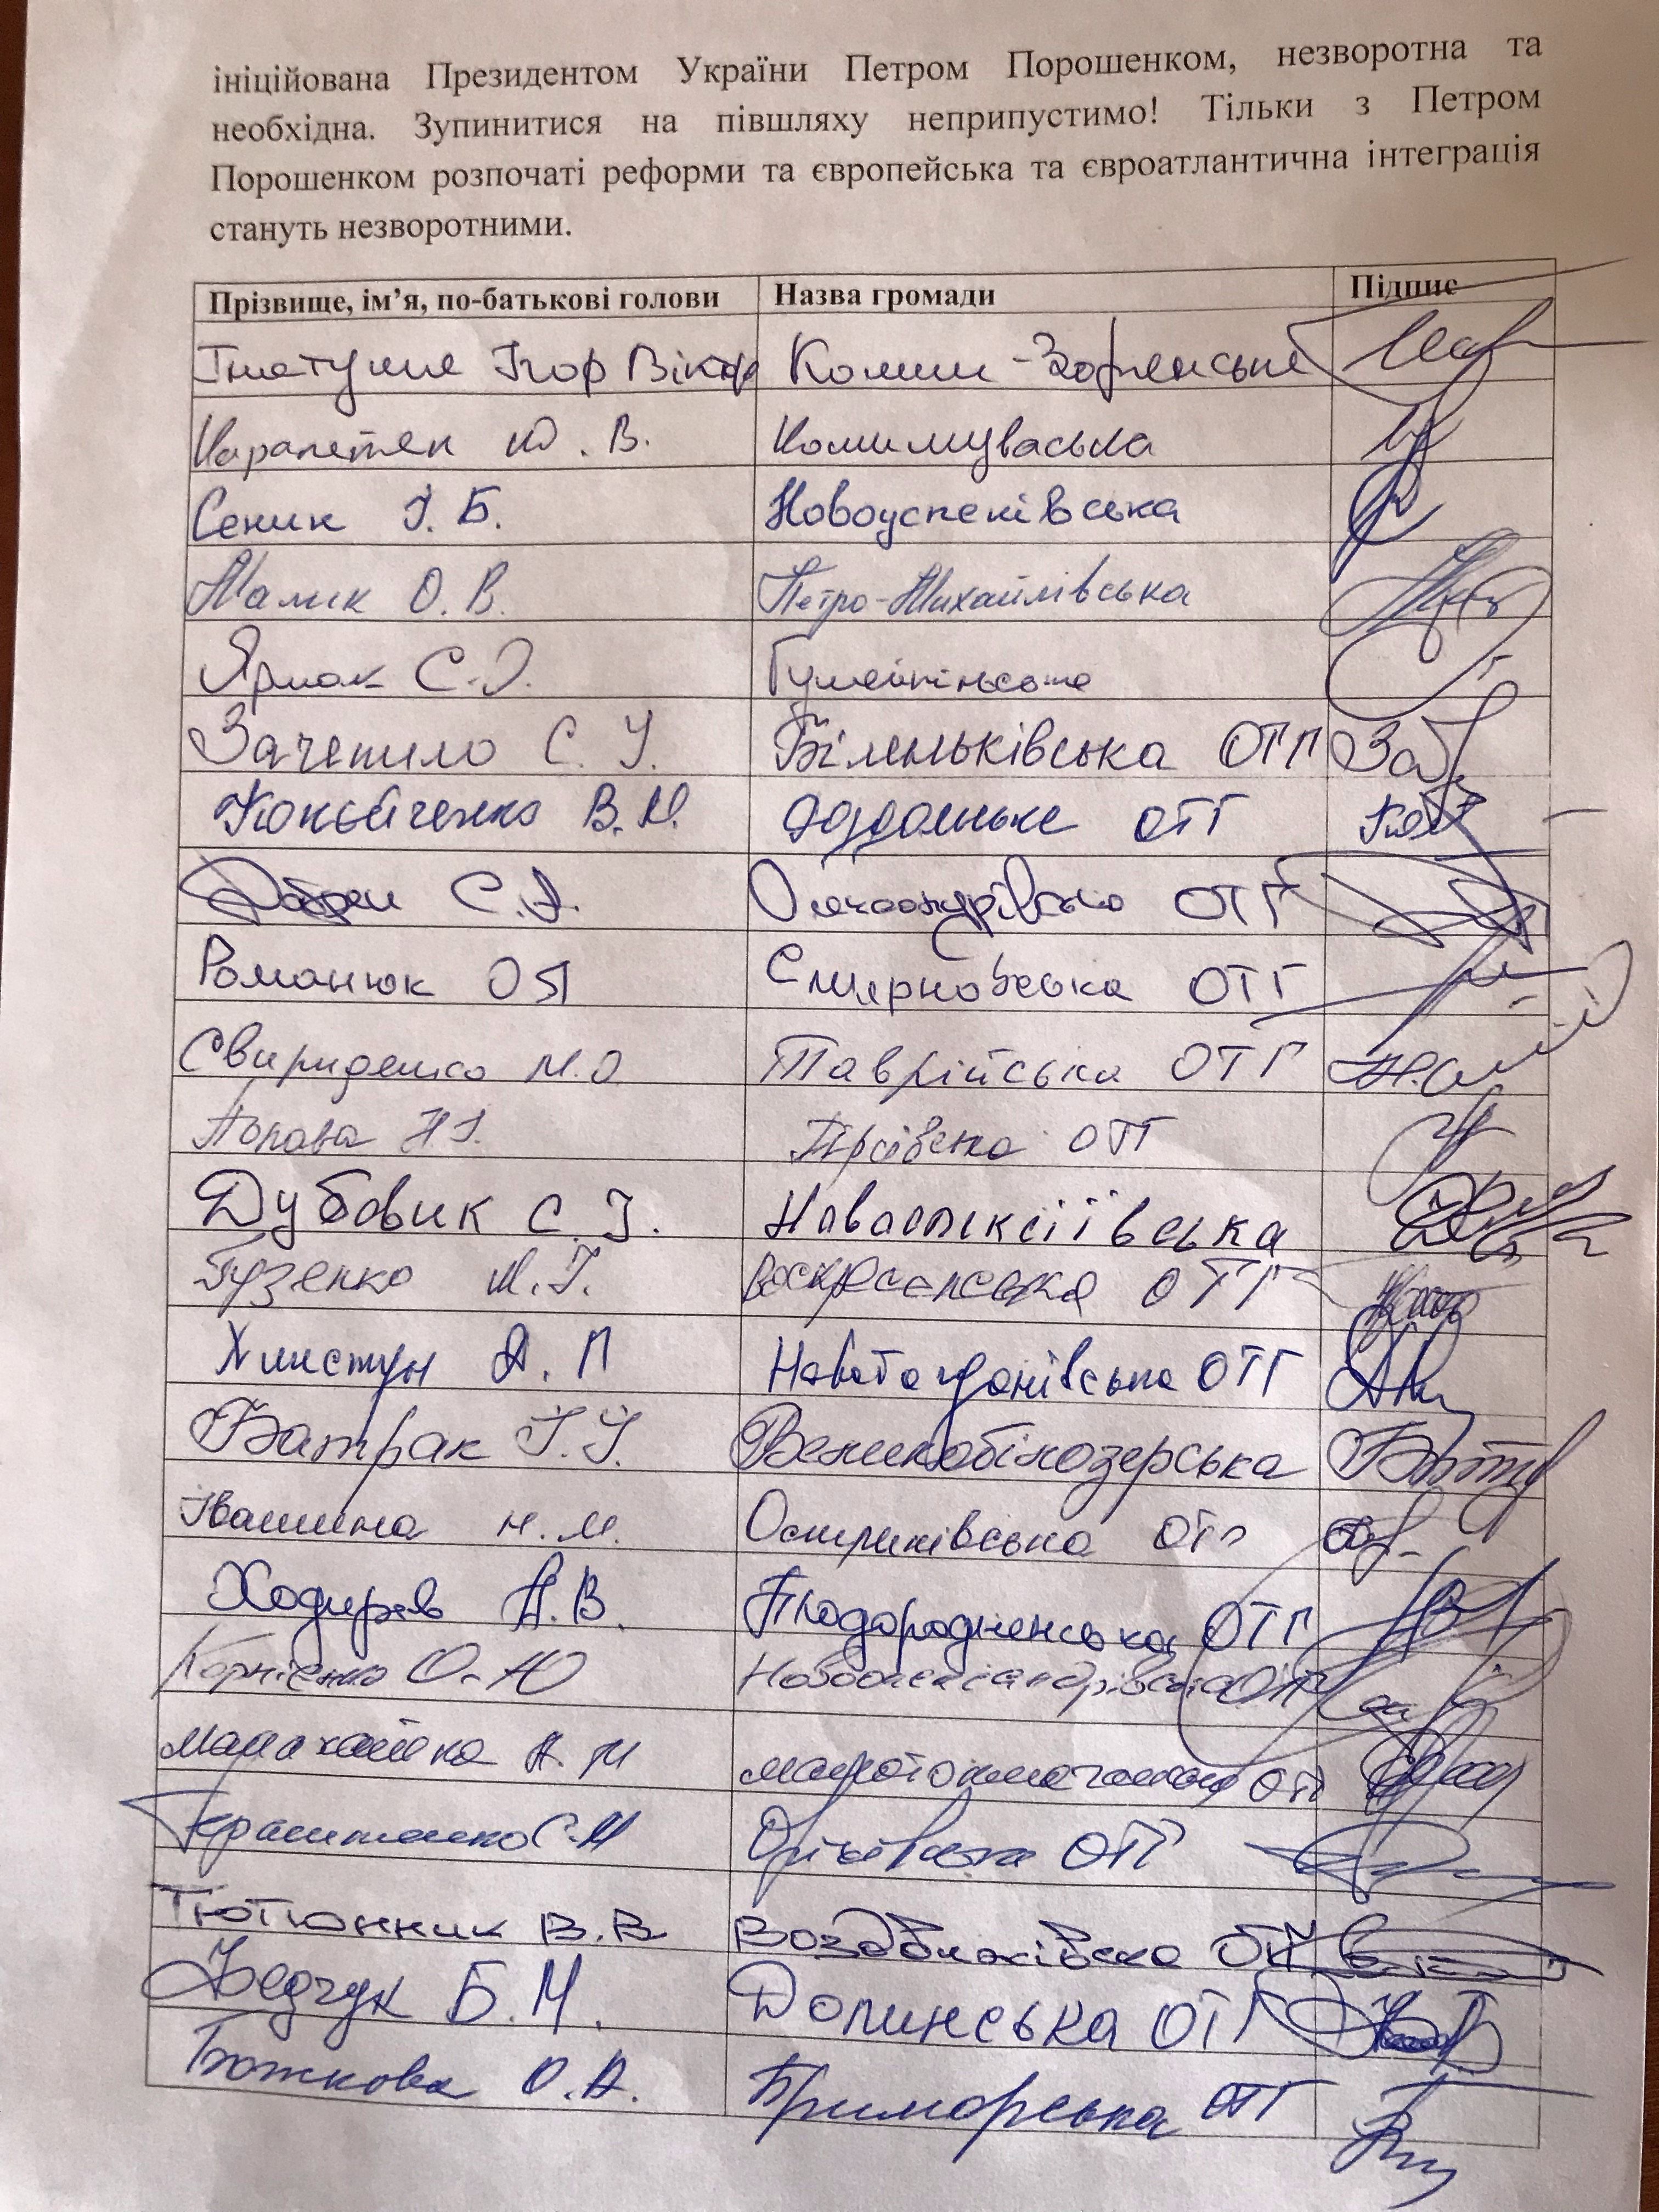 ініційована Президентом України Петром Порошенком, незворотна та
необхідна. Зупинитися на півшляху неприпустимо! Тільки з Петром
Порошенком розпочаті реформи та європейська та євроатлантична інтеграція
стануть незворотними.
Прізвище, ім’я, по-батькові голови Назва громади Підпис
Ігор Віктор
Карапетян Ю. В. Комишуваська
Сеник І. Б. Новоуспенівська
Малик О. В. Петро-Михайлівська
Ярмак С.
Зачепило С. І. Біленьківська ОТГ
В. М. ОТГ
С. ОТГ
Романюк О П Смирновська ОТГ
Свириденко М.О Таврійська ОТГ
Попова Н І. ОТГ
Дубовик С. І. Новоолексіївська
Гузенко М. Г. Воскресенська ОТГ
Хлистун А. П Новобогданівська ОТГ
Батрак І. І. Великобілозерська
Івашина Н. М. Остриківська ОТГ
Ходирєв А. В. Плодородненська ОТГ
Корнієнко О. Ю Новоолександрівська ОТГ
А. М ОТГ
С. М Оріхівська ОТГ
Тютюнник В. В Воздвижівська ОТГ
Федчук Б. М. Долинська ОТГ
Божкова О. А. Приморська ОТГ